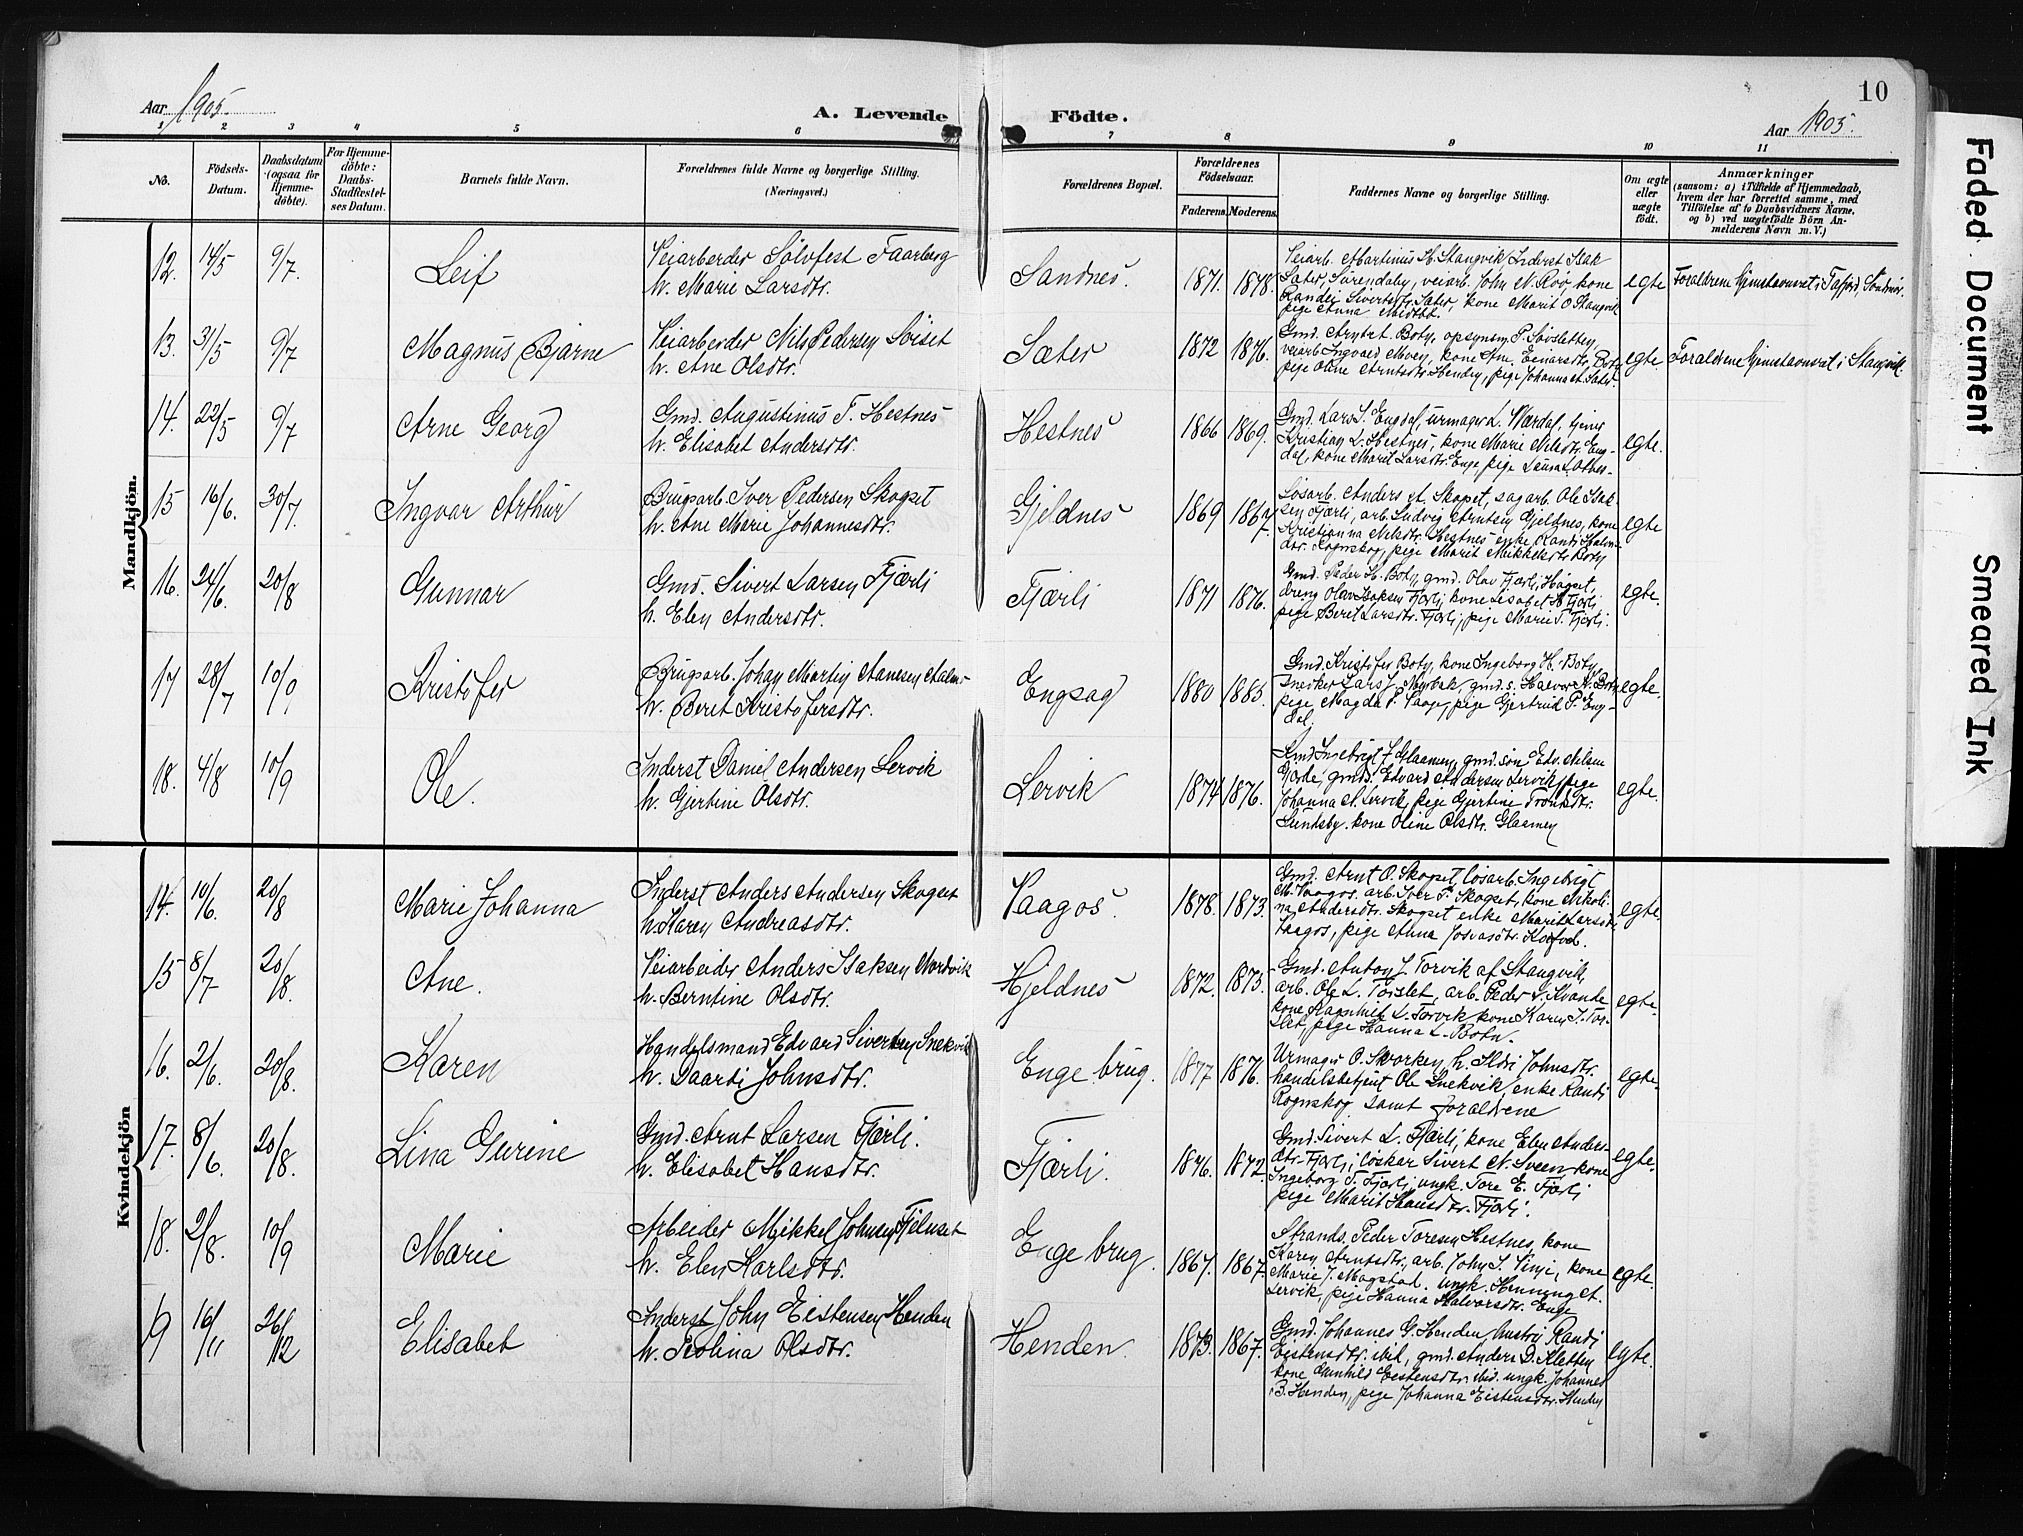 Aar 1905.
A. Levende
Födte.
Aar 1905.
10
1 2 3 4 5 6 7 8 9 10 11
No.
Födsels-
Datum.
Daabsdatum
(ogsaa for
Hjemme-
döbte).
For Hjemme-
döbte:
Daabs-
Stadfæstel-
ses Datum.
Barnets fulde Navn.
Forældrenes fulde Navne og borgerlige Stilling.
(Næringsvei.)
Forældrenes Bopæl.
Forældrenes
Födselsaar.
Faderens.
Moderens.
Faddernes Navne og borgerlige Stilling.
Om ægte
eller
uægte
födt.
Anmærkninger
(saasom: a) i Tilfælde af Hjemmedaab,
hvem der har forrettet samme, med
Tilföielse af to Daabsvidners Navne,
og b) ved uægtefödte Börn An-
melderens Navn m. V.)
Mandkjön.
12. 14/5 9/7. Leif
Veiarbeider Sölvfest Faarberg
h. Marie Larsdtr.
Sandnes. 1871. 1878.
Veiarb. Martinus H. Stangvik
Sæter, Surendalen, veiarb. John N. Röv, kone
Sivertsdtr. Sæter, kone Marit O. Stangvik
pige Anna
egte
Forældrene hjemstavnsret i Tafjord, Söndmör.
13. 31/5 9/7 Magnus Bjarne
Veiarbeider Nils Pedersen Söiset
h. Ane Olsdtr.
Sæter 1872 1876.
Gmd. Botn, opsynsm. P. Sövsletten,
veiarb. Ingvald Moen, kone Ane Einarsdtr. Botn
pige Oline Arntsdtr. Henden, pige Johanna A. Sæter
egte
Forældrene hjemstavnsret i Stangvik
14. 22/5 9/7 Arne Georg
Gmd. Augustinus T. Hestnes
h. Elisabet Andersdtr.
Hestnes 1866 1869.
Gmd. Lars S. Engdal, urmager L. Værdal, tjener
Kristian L. Hestnes, kone Marie Nilsdtr. Eng-
dal, kone Marit Larsdtr. Enge, pige
egte.
15 16/6. 30/7. Ingvar Arthur
Brugsarb. Iver Pedersen Skogset
h. Ane Marie Johannesdtr.
Gjeldnes 1869 1867.
Lösarb. Anders A. Skogset, sagarb. Ole Isak-
sen Fjærli, arb. Ludvig Arntsen Gjeldnes, kone
Kristianna Nilsdtr. Hestnes enke Randi Halvor-
dtr. Rognskog, pige Marit Mikkelsdtr. Botn
egte
16. 24/6. 20/8 Gunnar
Gmd. Sivert Larsen Fjærli
h. Elen Andersdtr.
Fjærli 1871 1876.
Gmd. Peder H. Botn, gmd. Olav Fjærli, Hagset,
dreng Olav Isaksen Fjærli, kone Lisabet A. Fjærli
pige Beret Larsdtr. Fjærli, pige Marie T. Fjærli.
egte.
17 28/7 10/9 Kristofer
Brugsarb. Johan Martin Aanesen Malmo
h. Beret Kristofersdtr.
Engsag 1880 1885.
Gmd. Kristofer Botn, kone Ingeborg H. Botn,
snedker Lars J. Myrbæk, gmd. s. Halvor K. Botn,
pige Magda P. Vaage, pige Gjertrud P. Eng-
dal.
egte.
18. 4/8 10/9 Ole.
Inderst Daniel Andersen Lervik
h. Gjertine Olsdtr.
Lervik 1874 1876.
Gmd. Ingebrigt J. Glaamen, gmd. sön Edv. Nilsen
Gjærde, gmds. Edvard Andersen Lervik, pige
Johanna A. Lervik, pige Gjertine Trondsdtr.
Sundsby. kone Oline Olsdtr. Glaamen
egte.
Kvindekjön
14. 10/6. 20/8 Marie Johanna
Inderst Anders Andersen Skogset
h. Karen Andreasdtr.
Vaagos. 1878. 1873.
Gmd. Arnt O. Skogset, lösarb. Ingebrigt
M. Vaagos, arb. Iver P. Skogset, kone Nikoli-
na Andersdtr. Skogset enke Marit Larsdtr.
Vaagos, pige Anna
egte.
15 8/7 20/8. Ane.
Veiarbeider Anders Isaksen Nordvik
h. Berntine Olsdtr.
Hjeldnes 1872. 1875.
Gmd. Anton J. Torvik af Stangvik,
arb. Ole L. Torslet, arb. Peder L. Kvande
kone Ragnhild L. Torvik, kone Karen J. Tor-
slet, pige Hanna L. Botn.
egte.
16. 2/6. 20/8. Karen
Handelsmand Edvard Sivertsen Snekvik
h. Daarti Johnsdtr.
Enge brug. 1877 1876.
Urmager O. Skorken, h. Ildri Johnsdtr.
handelsbetjent Ole Snekvik, enke Randi
Rognskog samt Forældrene
egte.
17. 8/6. 20/8. Lina Gurine
Gmd. Arnt Larsen Fjærli.
h. Elisabet Hansdtr.
Fjærli. 1876. 1872.
Gmd. Sivert L. Fjærli, kone Elen Anders-
dtr. Fjærli, löskar Sivert N. Sveen, kone
Ingeborg T. Fjærli, ungk. Tore E. Fjærli
pige Marit Hansdtr. Fjærli.
egte.
18. 2/8. 10/9 Marie
Arbeider Mikkel Johnsen Fjelnset
h. Elen Karlsdtr.
Enge brug. 1867. 1867.
Strands. Peder Toresen Hestnes, kone
Karen Arntsdtr., arb. John S. Sinje, kone
Marie J. Magstad, ungk. Henning A.
Lervik, pige Hanna Halvorsdtr. Enge
egte.
19 16/11 26/12 Elisabet
Inderst John Eistensen Henden
h. Serlina Olsdtr.
Henden 1873. 1867.
Gmd. Johannes G. Henden, hustru Randi
Eistensdtr. ibid, gmd. Anders D. Kletten
kone Gunhild Eistensdtr. ibid. ungk. Johannes
B. Henden, pige Johanna Eistensdtr. Henden
egte.
Faded Document
Smeared Ink